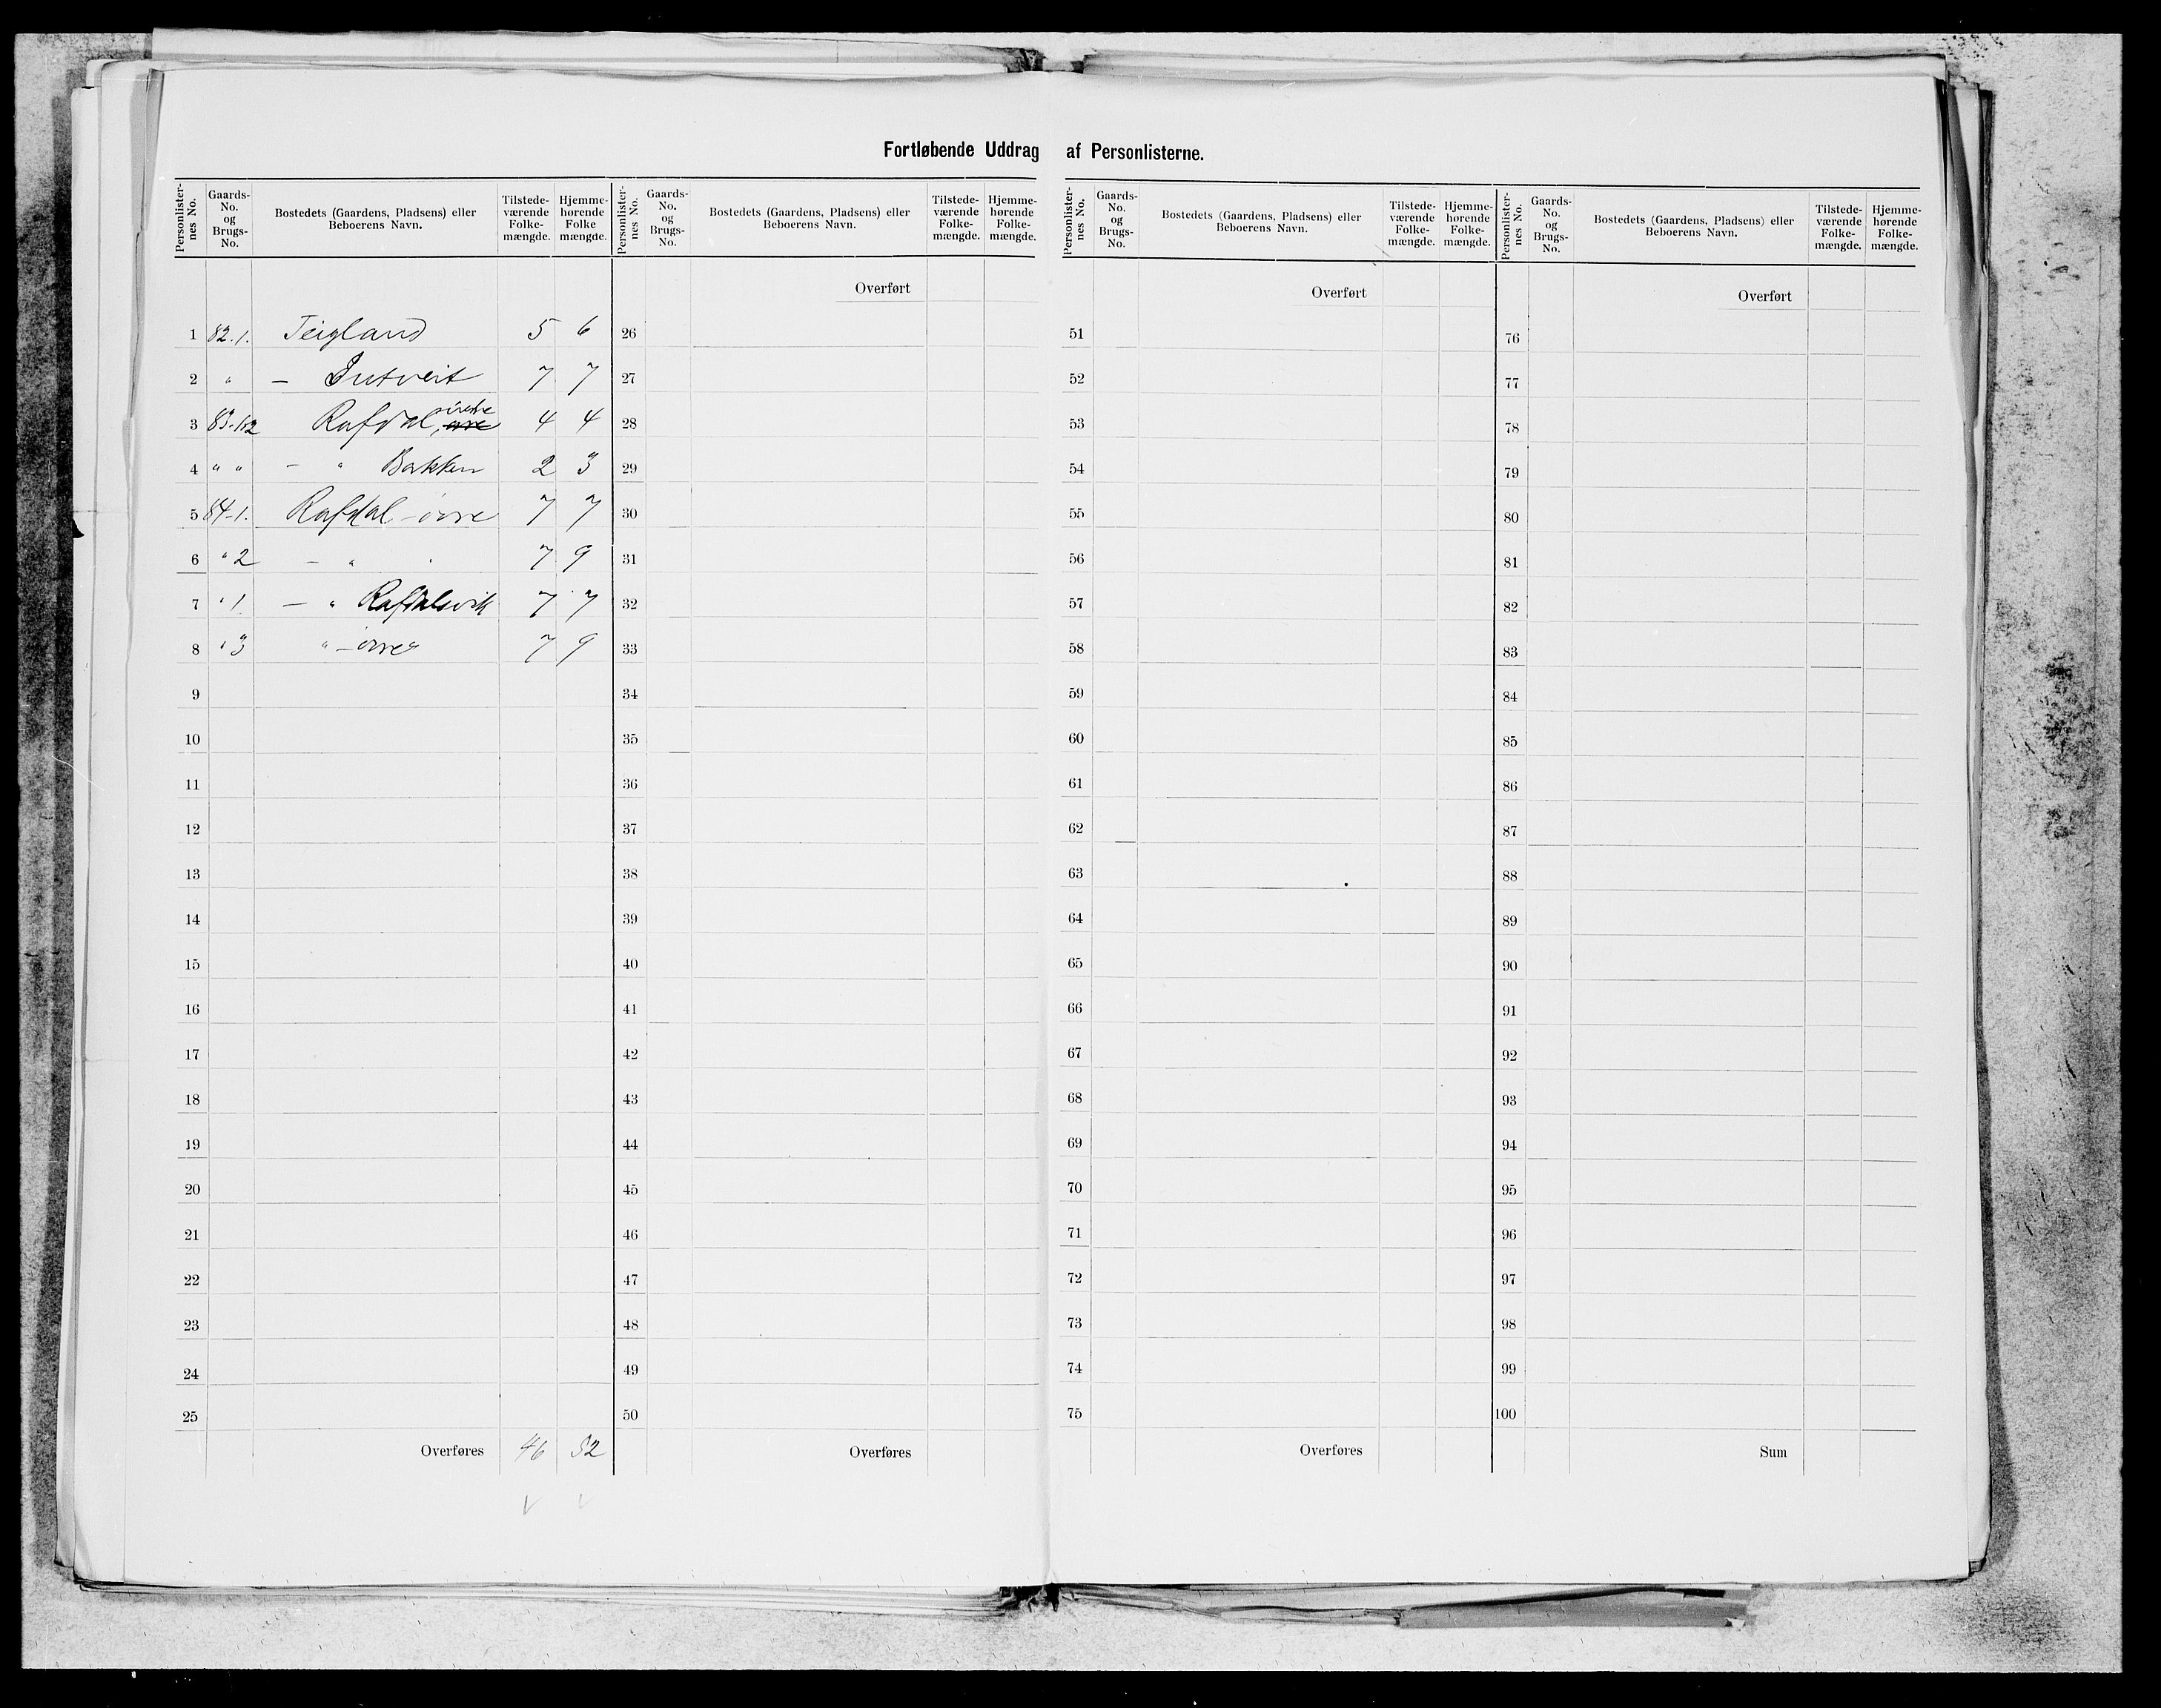 Fortløbende Uddrag af Personlisterne.
Personlister-nes No. | Gaards-No. og Brugs-No. | Bostedets (Gaardens, Pladsens) eller Beboerens Navn. | Tilstede-værende Folke-mængde. | Hjemme-hørende Folke mængde.
1 82.1. Teigland 5 6
2 " — Dutveit 7 7
3 83-1,2 Rafdal, indre 4 4
4 " " — " Bakken 2 3
5 84-1. Rafdal-övre 7 7
6 " 2 — " " 7 9
7 " 1 — " Rafdalsvik 7 7
8 " 3 " — övre 7 9
9
10
11
12
13
14
15
16
17
18
19
20
21
22
23
24
25
Overføres 46 52
Personlister-nes No. | Gaards-No. og Brugs-No. | Bostedets (Gaardens, Pladsens) eller Beboerens Navn. | Tilstede-værende Folke-mængde. | Hjemme-hørende Folke-mængde.
Overført
26
27
28
29
30
31
32
33
34
35
36
37
38
39
40
41
42
43
44
45
46
47
48
49
50
Overføres
Personlister-nes No. | Gaards-No. og Brugs-No. | Bostedets (Gaardens, Pladsens) eller Beboerens Navn. | Tilstede-værende Folke-mængde. | Hjemme-hørende Folke-mængde.
Overført
51
52
53
54
55
56
57
58
59
60
61
62
63
64
65
66
67
68
69
70
71
72
73
74
75
Overføres
Personlister-nes No. | Gaards-No. og Brugs-No. | Bostedets (Gaardens, Pladsens) eller Beboerens Navn. | Tilstede-værende Folke-mængde. | Hjemme-hørende Folke-mængde.
Overført
76
77
78
79
80
81
82
83
84
85
86
87
88
89
90
91
92
93
94
95
96
97
98
99
100
Sum